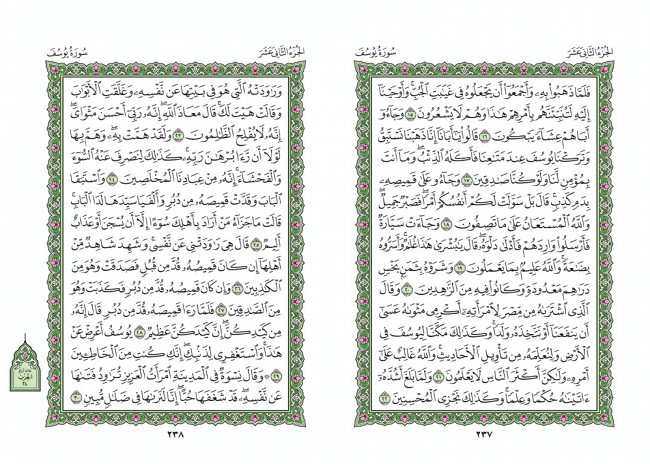 الجزء الثاني عشر
سورة يوسف
فَلَمَّا ذَهَبُوا۟ بِهِۦ وَأَجْمَعُوٓا۟ أَن يَجْعَلُوهُ فِى غَيَٰبَتِ ٱلْجُبِّ ۚ وَأَوْحَيْنَآ
إِلَيْهِ لَتُنَبِّئَنَّهُم بِأَمْرِهِمْ هَٰذَا وَهُمْ لَا يَشْعُرُونَ ١٥ وَجَآءُو
أَبَاهُمْ عِشَآءً يَبْكُونَ ١٦ قَالُوا۟ يَٰٓأَبَانَآ إِنَّا ذَهَبْنَا نَسْتَبِقُ
وَتَرَكْنَا يُوسُفَ عِندَ مَتَٰعِنَا فَأَكَلَهُ ٱلذِّئْبُ ۖ وَمَآ أَنتَ
بِمُؤْمِنٍ لَّنَا وَلَوْ كُنَّا صَٰدِقِينَ ١٧ وَجَآءُو عَلَىٰ قَمِيصِهِۦ
بِدَمٍ كَذِبٍ ۚ قَالَ بَلْ سَوَّلَتْ لَكُمْ أَنفُسُكُمْ أَمْرًا ۖ فَصَبْرٌ جَمِيلٌ ۖ
وَٱللَّهُ ٱلْمُسْتَعَانُ عَلَىٰ مَا تَصِفُونَ ١٨ وَجَآءَتْ سَيَّارَةٌ
فَأَرْسَلُوا۟ وَارِدَهُمْ فَأَدْلَىٰ دَلْوَهُۥ ۖ قَالَ يَٰبُشْرَىٰ هَٰذَا غُلَٰمٌ ۚ وَأَسَرُّوهُ
بِضَٰعَةً ۚ وَٱللَّهُ عَلِيمٌۢ بِمَا يَعْمَلُونَ ١٩ وَشَرَوْهُ بِثَمَنٍۭ بَخْسٍ
دَرَٰهِمَ مَعْدُودَةٍ وَكَانُوا۟ فِيهِ مِنَ ٱلزَّٰهِدِينَ ٢٠ وَقَالَ
ٱلَّذِى ٱشْتَرَىٰهُ مِن مِّصْرَ لِٱمْرَأَتِهِۦٓ أَكْرِمِى مَثْوَىٰهُ عَسَىٰٓ
أَن يَنفَعَنَآ أَوْ نَتَّخِذَهُۥ وَلَدًا ۚ وَكَذَٰلِكَ مَكَّنَّا لِيُوسُفَ فِى
ٱلْأَرْضِ وَلِنُعَلِّمَهُۥ مِن تَأْوِيلِ ٱلْأَحَادِيثِ ۚ وَٱللَّهُ غَالِبٌ عَلَىٰٓ
أَمْرِهِۦ وَلَٰكِنَّ أَكْثَرَ ٱلنَّاسِ لَا يَعْلَمُونَ ٢١ وَلَمَّا بَلَغَ أَشُدَّهُۥٓ
ءَاتَيْنَٰهُ حُكْمًا وَعِلْمًا ۚ وَكَذَٰلِكَ نَجْزِى ٱلْمُحْسِنِينَ ٢٢
٢٣٧
الجزء الثاني عشر
سورة يوسف
وَرَٰوَدَتْهُ ٱلَّتِى هُوَ فِى بَيْتِهَا عَن نَّفْسِهِۦ وَغَلَّقَتِ ٱلْأَبْوَٰبَ
وَقَالَتْ هَيْتَ لَكَ ۚ قَالَ مَعَاذَ ٱللَّهِ ۖ إِنَّهُۥ رَبِّىٓ أَحْسَنَ مَثْوَاىَ ۖ
إِنَّهُۥ لَا يُفْلِحُ ٱلظَّٰلِمُونَ ٢٣ وَلَقَدْ هَمَّتْ بِهِۦ ۖ وَهَمَّ بِهَا
لَوْلَآ أَن رَّءَا بُرْهَٰنَ رَبِّهِۦ ۚ كَذَٰلِكَ لِنَصْرِفَ عَنْهُ ٱلسُّوٓءَ
وَٱلْفَحْشَآءَ ۚ إِنَّهُۥ مِنْ عِبَادِنَا ٱلْمُخْلَصِينَ ٢٤ وَٱسْتَبَقَا
ٱلْبَابَ وَقَدَّتْ قَمِيصَهُۥ مِن دُبُرٍ وَأَلْفَيَا سَيِّدَهَا لَدَا ٱلْبَابِ ۚ
قَالَتْ مَا جَزَآءُ مَنْ أَرَادَ بِأَهْلِكَ سُوٓءًا إِلَّآ أَن يُسْجَنَ أَوْ عَذَابٌ
أَلِيمٌ ٢٥ قَالَ هِىَ رَٰوَدَتْنِى عَن نَّفْسِى ۚ وَشَهِدَ شَاهِدٌ مِّنْ
أَهْلِهَآ إِن كَانَ قَمِيصُهُۥ قُدَّ مِن قُبُلٍ فَصَدَقَتْ وَهُوَ مِنَ
ٱلْكَٰذِبِينَ ٢٦ وَإِن كَانَ قَمِيصُهُۥ قُدَّ مِن دُبُرٍ فَكَذَبَتْ وَهُوَ
مِنَ ٱلصَّٰدِقِينَ ٢٧ فَلَمَّا رَءَا قَمِيصَهُۥ قُدَّ مِن دُبُرٍ قَالَ إِنَّهُۥ
مِن كَيْدِكُنَّ ۖ إِنَّ كَيْدَكُنَّ عَظِيمٌ ٢٨ يُوسُفُ أَعْرِضْ عَنْ
هَٰذَا ۚ وَٱسْتَغْفِرِى لِذَنۢبِكِ ۖ إِنَّكِ كُنتِ مِنَ ٱلْخَاطِـِٔينَ
٢٩ ۞ وَقَالَ نِسْوَةٌ فِى ٱلْمَدِينَةِ ٱمْرَأَتُ ٱلْعَزِيزِ تُرَٰوِدُ فَتَىٰهَا
عَن نَّفْسِهِۦ ۖ قَدْ شَغَفَهَا حُبًّا ۖ إِنَّا لَنَرَىٰهَا فِى ضَلَٰلٍ مُّبِينٍ ٣٠
٢٣٨